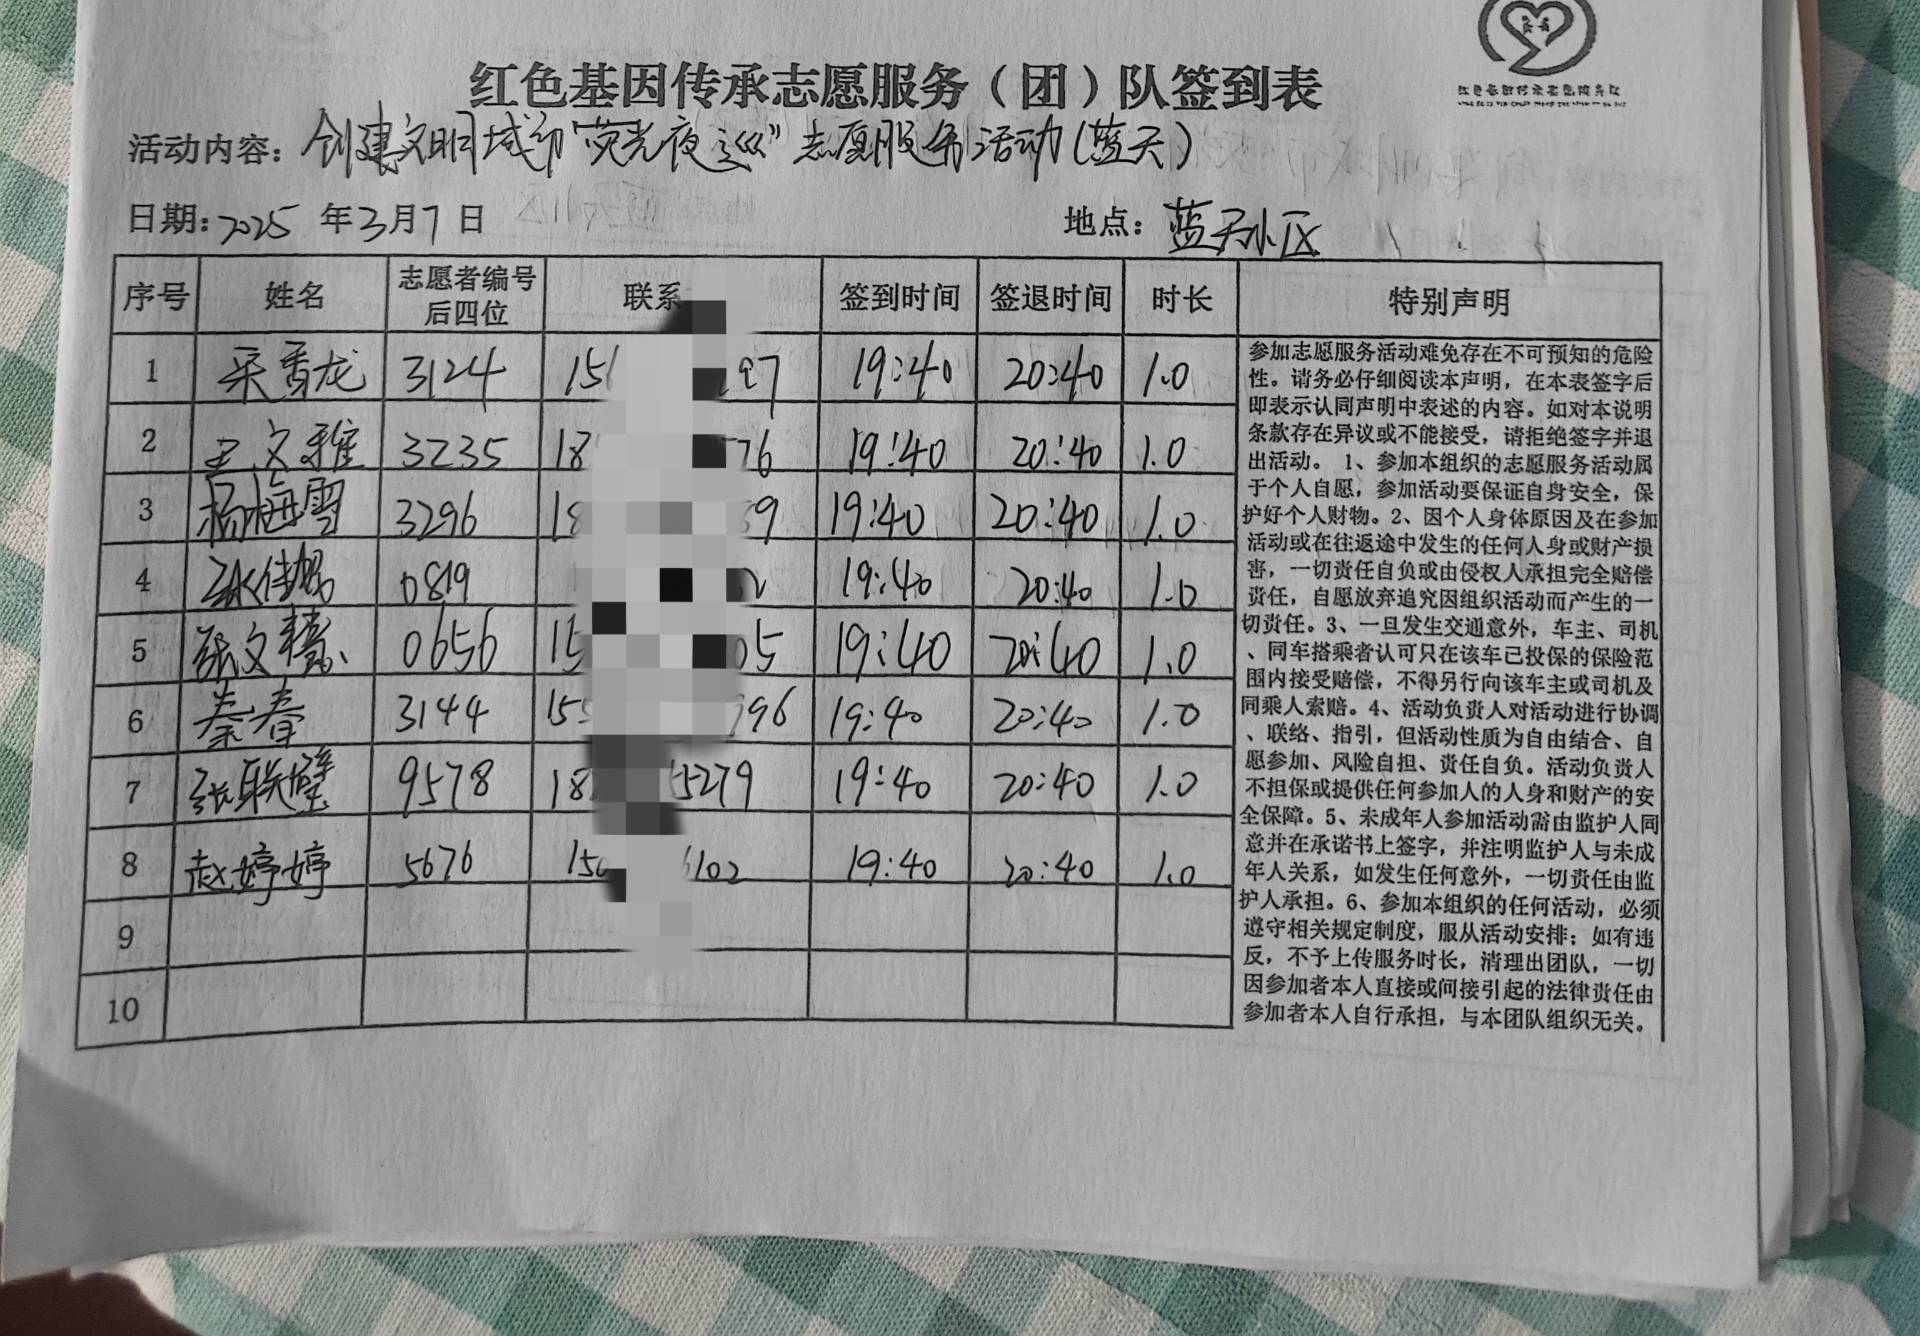 红色基因传承志愿服务（团）队签到表
活动内容：创建文明城市"荧光夜巡"志愿服务活动（蓝天）
日期：2025年3月7日 地点：蓝天小区
序号 姓名 志愿者编号后四位 联系 签到时间 签退时间 时长 特别声明
1 香龙 3124 15 97 19:40 20:40 1.0
2 王文雅 3235 18 76 19:40 20:40 1.0
3 杨梅雪 3296 18 59 19:40 20:40 1.0
4 0819 19:40 20:40 1.0
5 张文 0656 15 05 19:40 20:40 1.0
6 秦春 3144 15 996 19:40 20:40 1.0
7 张联璧 9578 18 5279 19:40 20:40 1.0
8 赵婷婷 5676 150 6102 19:40 20:40 1.0
9
10
参加志愿服务活动难免存在不可预知的危险
性。请务必仔细阅读本声明，在本表签字后
即表示认同声明中表述的内容。如对本说明
条款存在异议或不能接受，请拒绝签字并退
出活动。 1、参加本组织的志愿服务活动属
于个人自愿，参加活动要保证自身安全，保
护好个人财物。2、因个人身体原因及在参加
活动或在往返途中发生的任何人身或财产损
害，一切责任自负或由侵权人承担完全赔偿
责任，自愿放弃追究因组织活动而产生的一
切责任。3、一旦发生交通意外，车主、司机
、同车搭乘者认可只在该车已投保的保险范
围内接受赔偿，不得另行向该车主或司机及
同乘人索赔。4、活动负责人对活动进行协调
、联络、指引，但活动性质为自由结合、自
愿参加、风险自担、责任自负。活动负责人
不担保或提供任何参加人的人身和财产的安
全保障。5、未成年人参加活动需由监护人同
意并在承诺书上签字，并注明监护人与未成
年人关系，如发生任何意外，一切责任由监
护人承担。6、参加本组织的任何活动，必须
遵守相关规定制度，服从活动安排；如有违
反，不予上传服务时长，清理出团队，一切
因参加者本人直接或间接引起的法律责任由
参加者本人自行承担，与本团队组织无关。